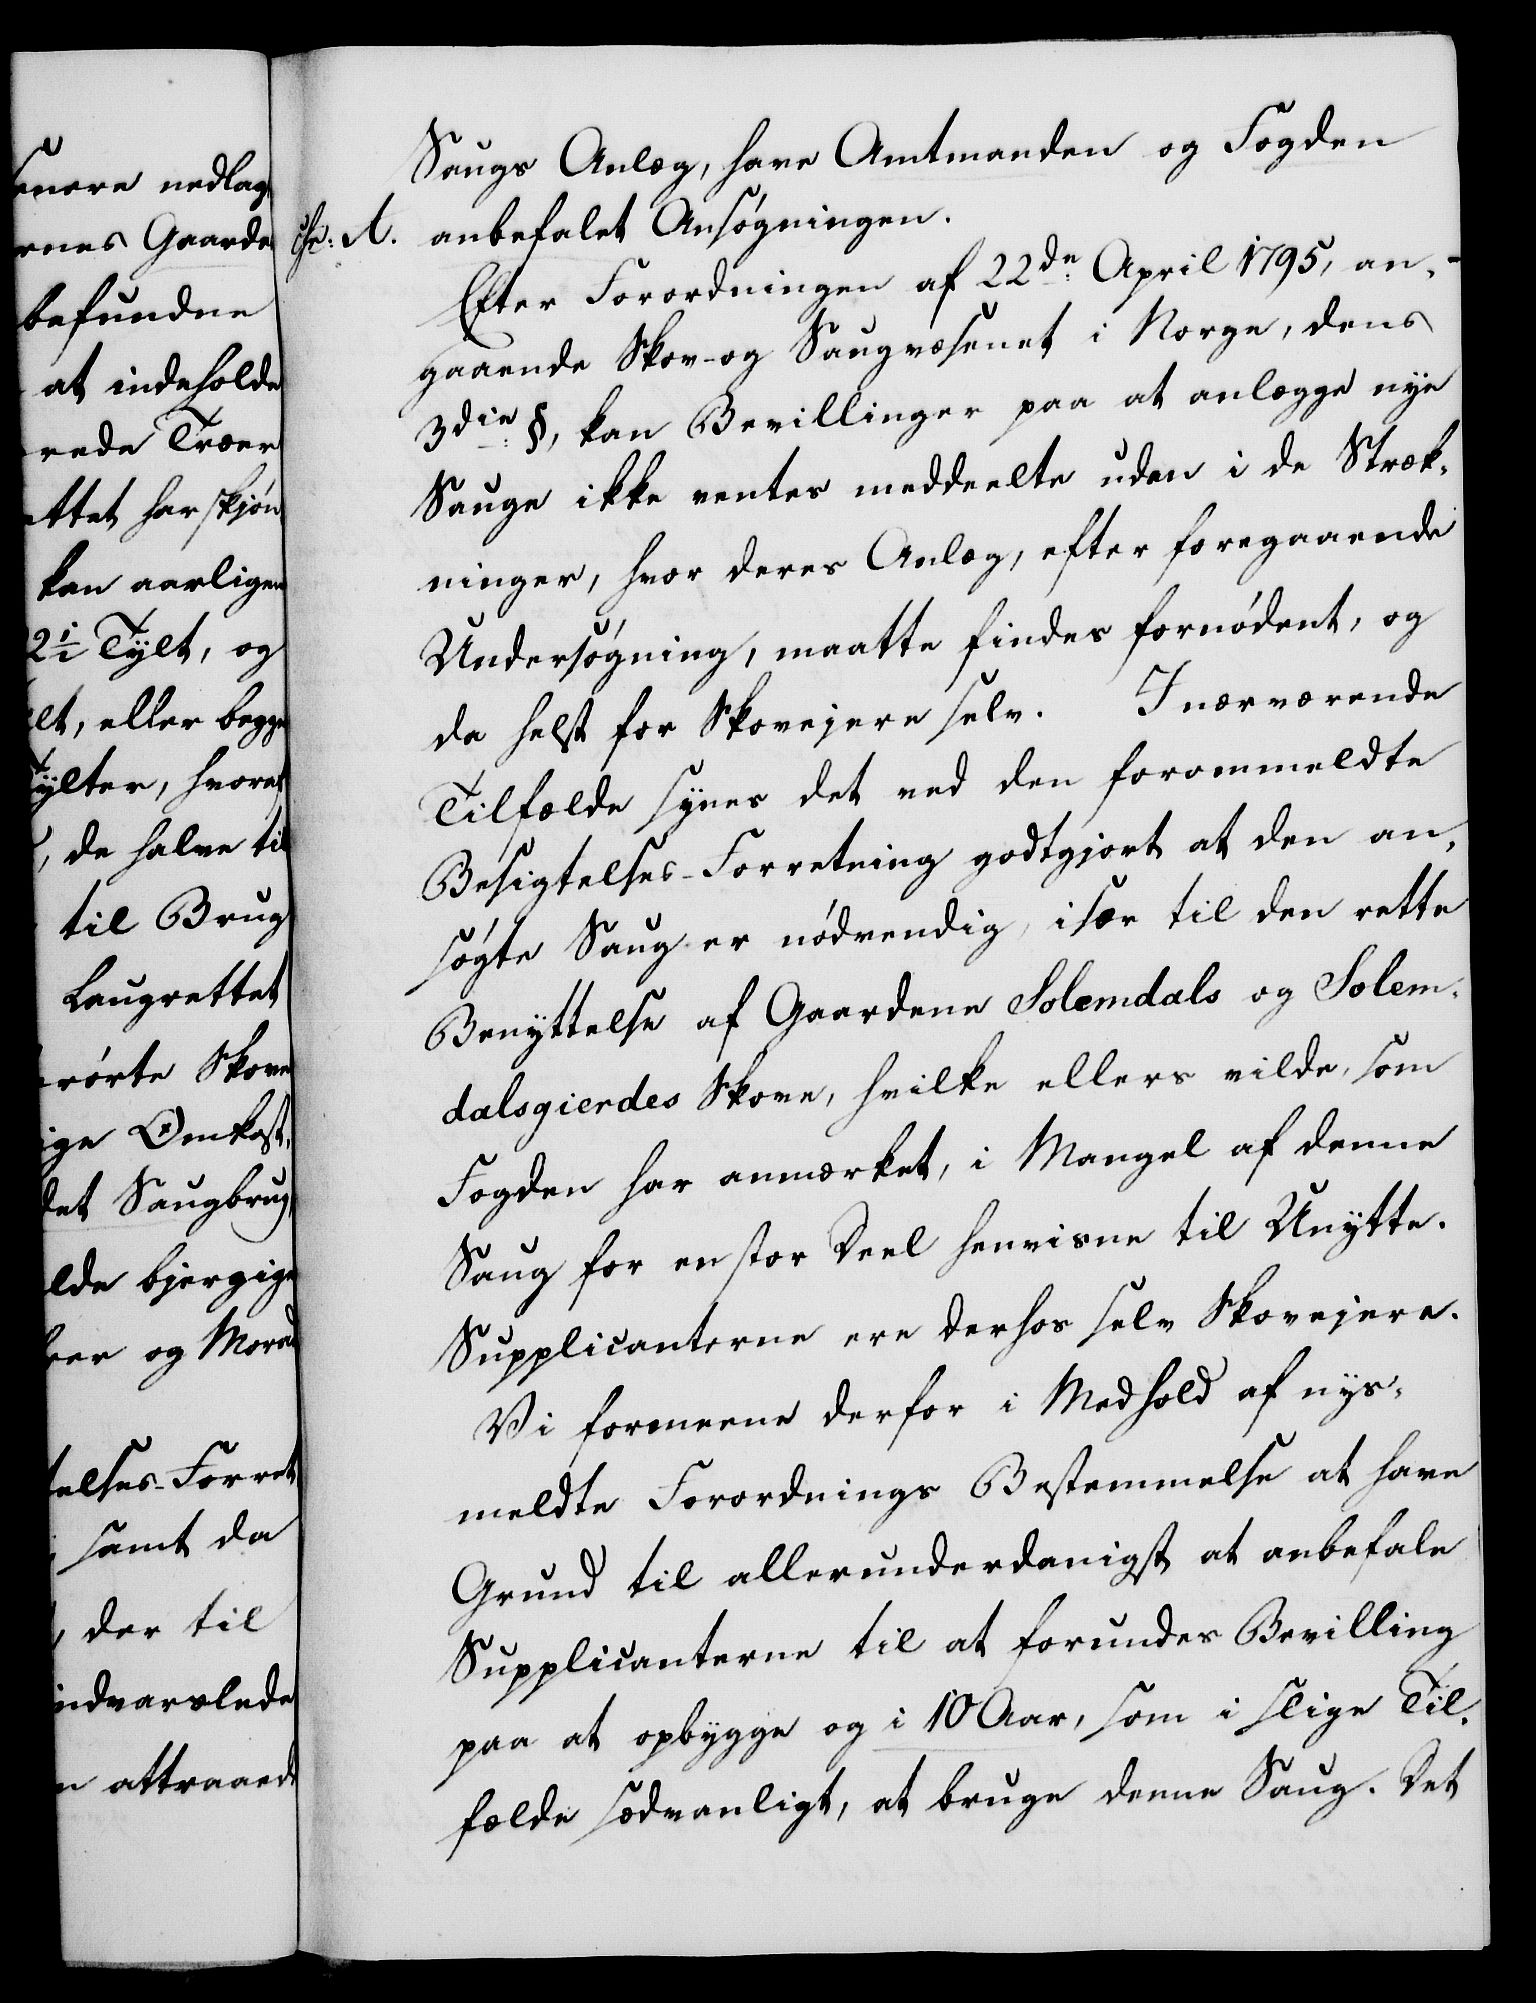 enere nedlag
rnes Gaarde
befundne
at indeholde
rede Træer
ettet har skjøn
kan aarligen
2½ Tylt, og
lt, eller begge
Tylter, hvoraf
, de halve til
til Brug
Laugrettet
rørte Skove
ige Omkost,
det Saugbrug
lde bjergige
og Morad
telses-Forret
samt da
, der til
indvarslede
n attraaede
A.
Saugs Anlæg, have Amtmanden og Fogden
anbefalet Ansøgningen.
Efter Forordningen af 22de April 1795, an-
gaaende Skov- og Saugvæsenet i Norge, dens
3die §, kan Bevillinger paa at anlægge nye
Sauge ikke ventes meddeelte uden i de Stræk-
ninger, hvor deres Anlæg, efter foregaaende
Undersøgning, maatte findes fornødent, og
da helst for Skovejere selv. I nærværende
Tilfælde synes det ved den forommeldte
Besigtelses-Forretning godtgjort at den an-
søgte Saug er nødvendig, især til den rette
Benyttelse af Gaardene Solemdals og Solem-
dalsgierdes Skove, hvilke ellers vilde, som
Fogden har anmærket, i Mangel af denne
Saug for en stor Deel henvisne til Unytte.
Supplicanterne ere derhos selv Skovejere.
Vi formeene derfor i Medhold af nys-
meldte Forordnings Bestemmelse at have
Grund til allerunderdanigst at anbefale
Supplicanterne til at forundes Bevilling
paa at opbygge og i 10 Aar, som i slige Til-
fælde sædvanligt, at bruge denne Saug. Det